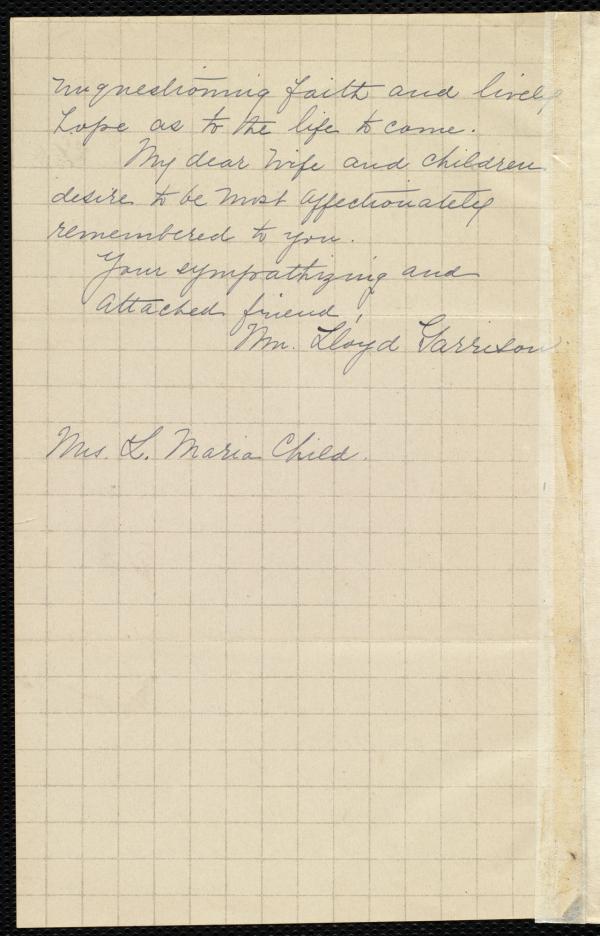 unquestioning faith and lively
hope as to the life to come.
My dear wife and children
desire to be most affectionately
remembered to you.
Your sympathizing and
attached friend,
Wm. Lloyd Garrison
Mrs. L. Maria Child.